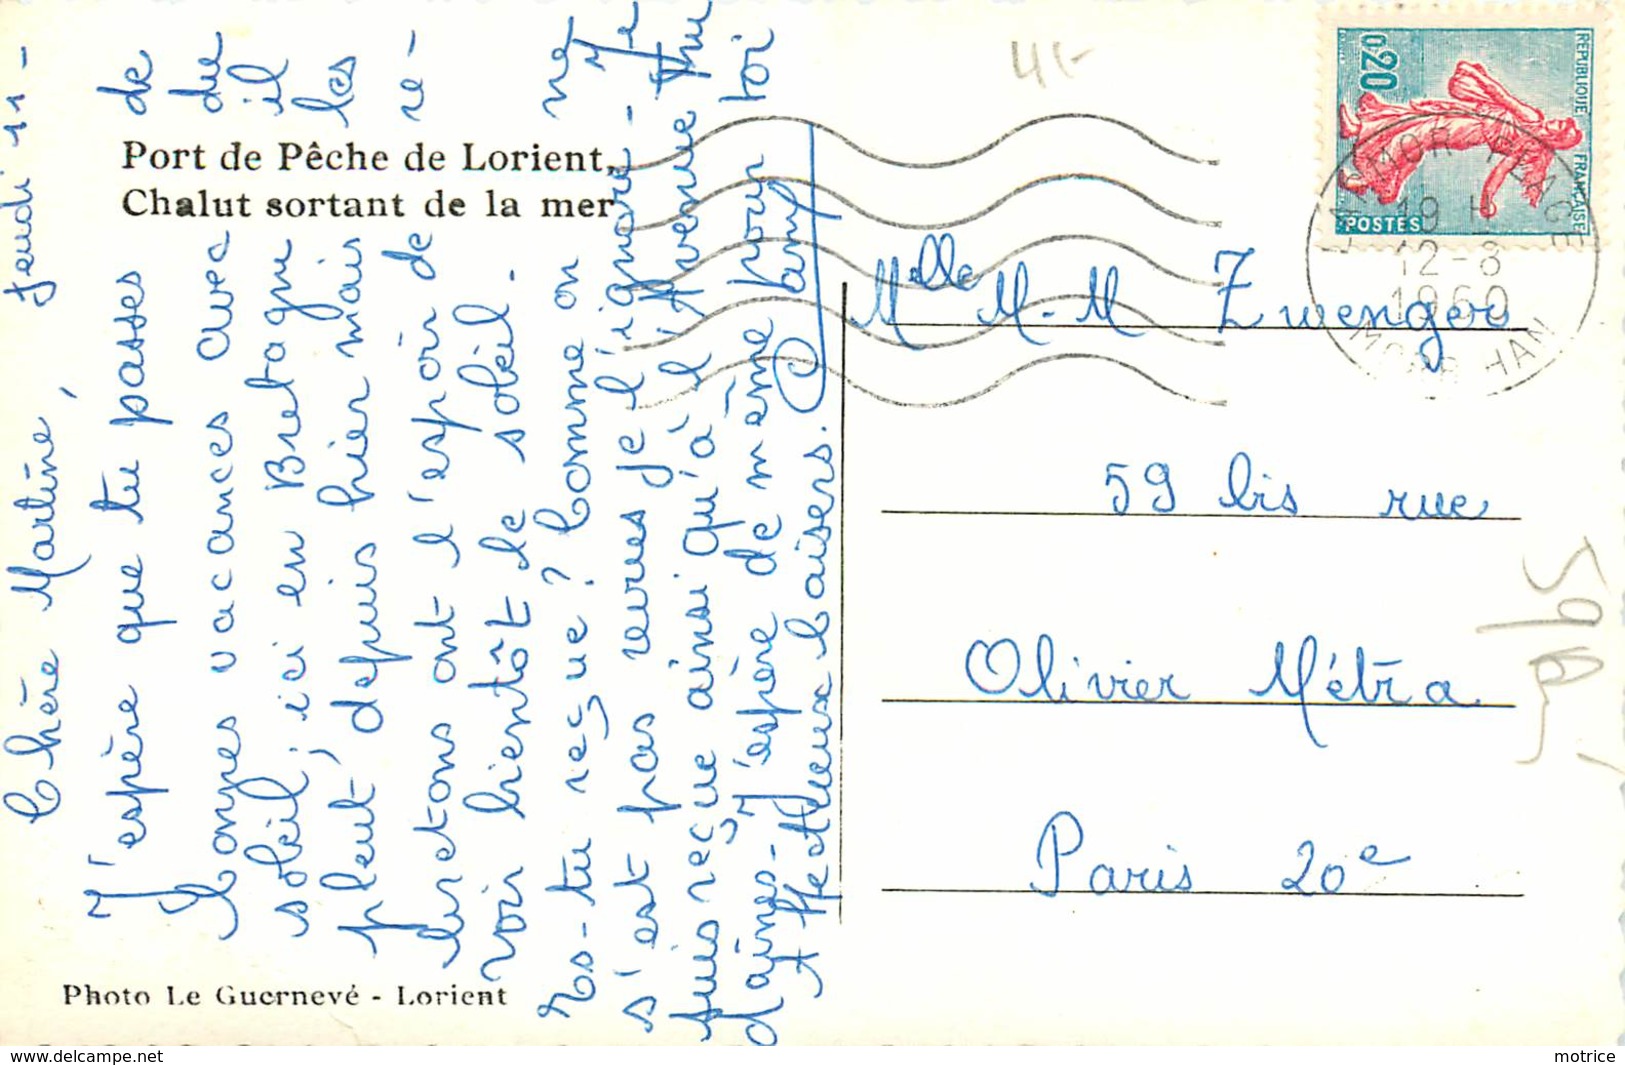 Port de Pêche de Lorient,
Chalut sortant de la mer
Jeudi 11 -
Chère Martine,
J'espère que tu passes de
bonnes vacances avec du
soleil; ici en Bretagne il
pleut, depuis hier mais les
bretons ont l'espoir de re-
voir bientôt le soleil.
Es-tu reçue? Comme on ne
s'est pas revues je l'ignore - Je
suis reçue ainsi qu'à l'Avenue Thu
daines - J'espère de même pour toi
Affectueux baisers.
Photo Le Guernevé - Lorient
Melle M-M Zwenger
59 bis rue
Olivier Métra
Paris 20e
REPUBLIQUE FRANÇAISE
0,20
POSTES
LARMOR PLAGE
19 H
12-8
1960
MORBIHAN
59
delcampe.net
motrice